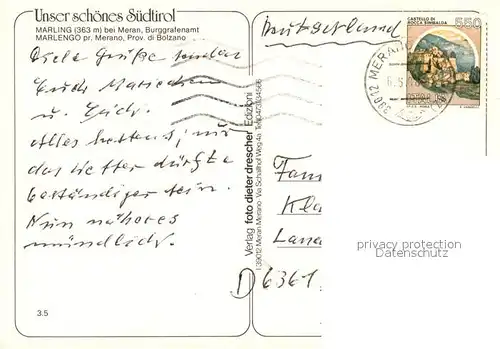 Unser schönes Südtirol
MARLING (363 m) bei Meran, Burggrafenamt
MARLENGO pr. Merano, Prov. di Bolzano
Viele Grüße senden
Euch Mariechen
u. Erich.
Alles bestens, nur
das Wetter dürfte
beständiger sein.
Nun näheres
mündlich.
3.5
Verlag foto dieter drescher Edizioni
I 39012 Meran Merano · Via Schallhof Weg 4a
CASTELLO DI
ROCCA SINIBALDA
550
39012 MERAN
Fam
Kla
D 6361
privacy protection
Datenschutz